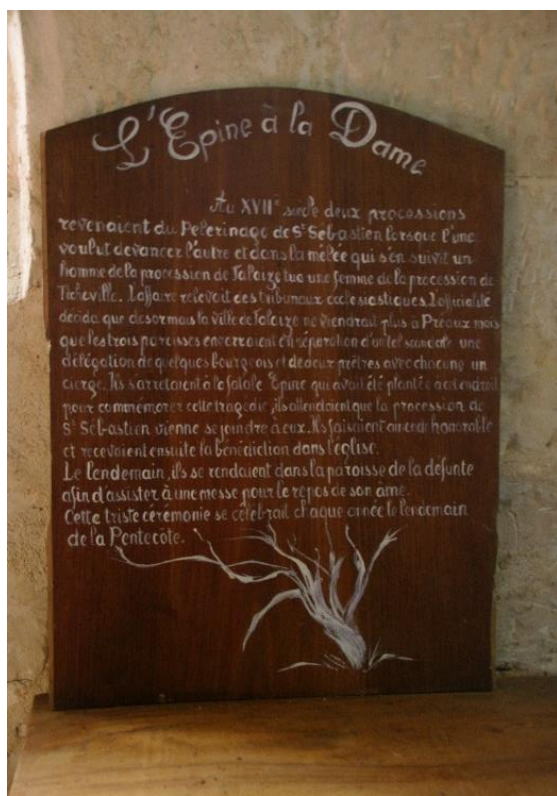 L'Epine à la Dame
Au XVIIe siecle deux processions
revenaient du Pelerinage de St Sebastien lorsque l'une
voulut devancer l'autre et dans la mêlée qui s'en suivit un
homme de la procession de Falaize tua une femme de la procession de
Ticheville. L'affaire relevait des tribunaux ecclesiastiques. L'officialité
décida que desormais la ville de Falaize ne viendrait plus à Préaux mais
que les trois paroisses enverraient en réparation d'un tel scandale une
délégation de quelques bourgeois et de deux prêtres avec chacune un
cierge. Ils s'arretaient à la fatale Epine qui avait été plantée à cet endroit
pour commémorer cette tragedie, ils attendaient que la procession de
St Sébastien vienne se joindre à eux. Ils faisaient amende honorable
et recevaient ensuite la bénédiction dans l'église.
Le lendemain, ils se rendaient dans la paroisse de la défunte
afin d'assister à une messe pour le repos de son âme.
Cette triste cérémonie se célébrait chaque année le lendemain
de la Pentecôte.